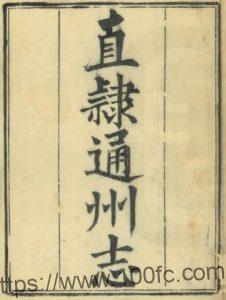 直隸通州志
https://www.500fc.com